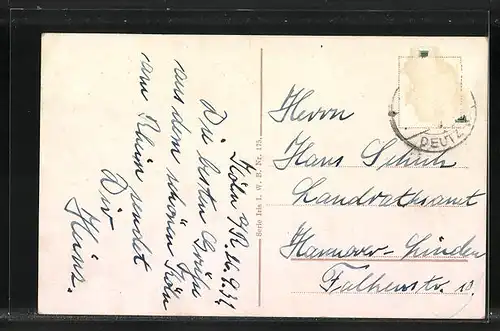 Köln a/R. 16.9.31
Die besten Grüße
aus dem schönen Köln
am Rhein sendet
Dir
Heinz.
Serie Iris I. W. B. Nr. 115
DEUTZ
Herrn
Hans Schulz
Landratsamt
Hannover-Linden
Falkenstr. 10.